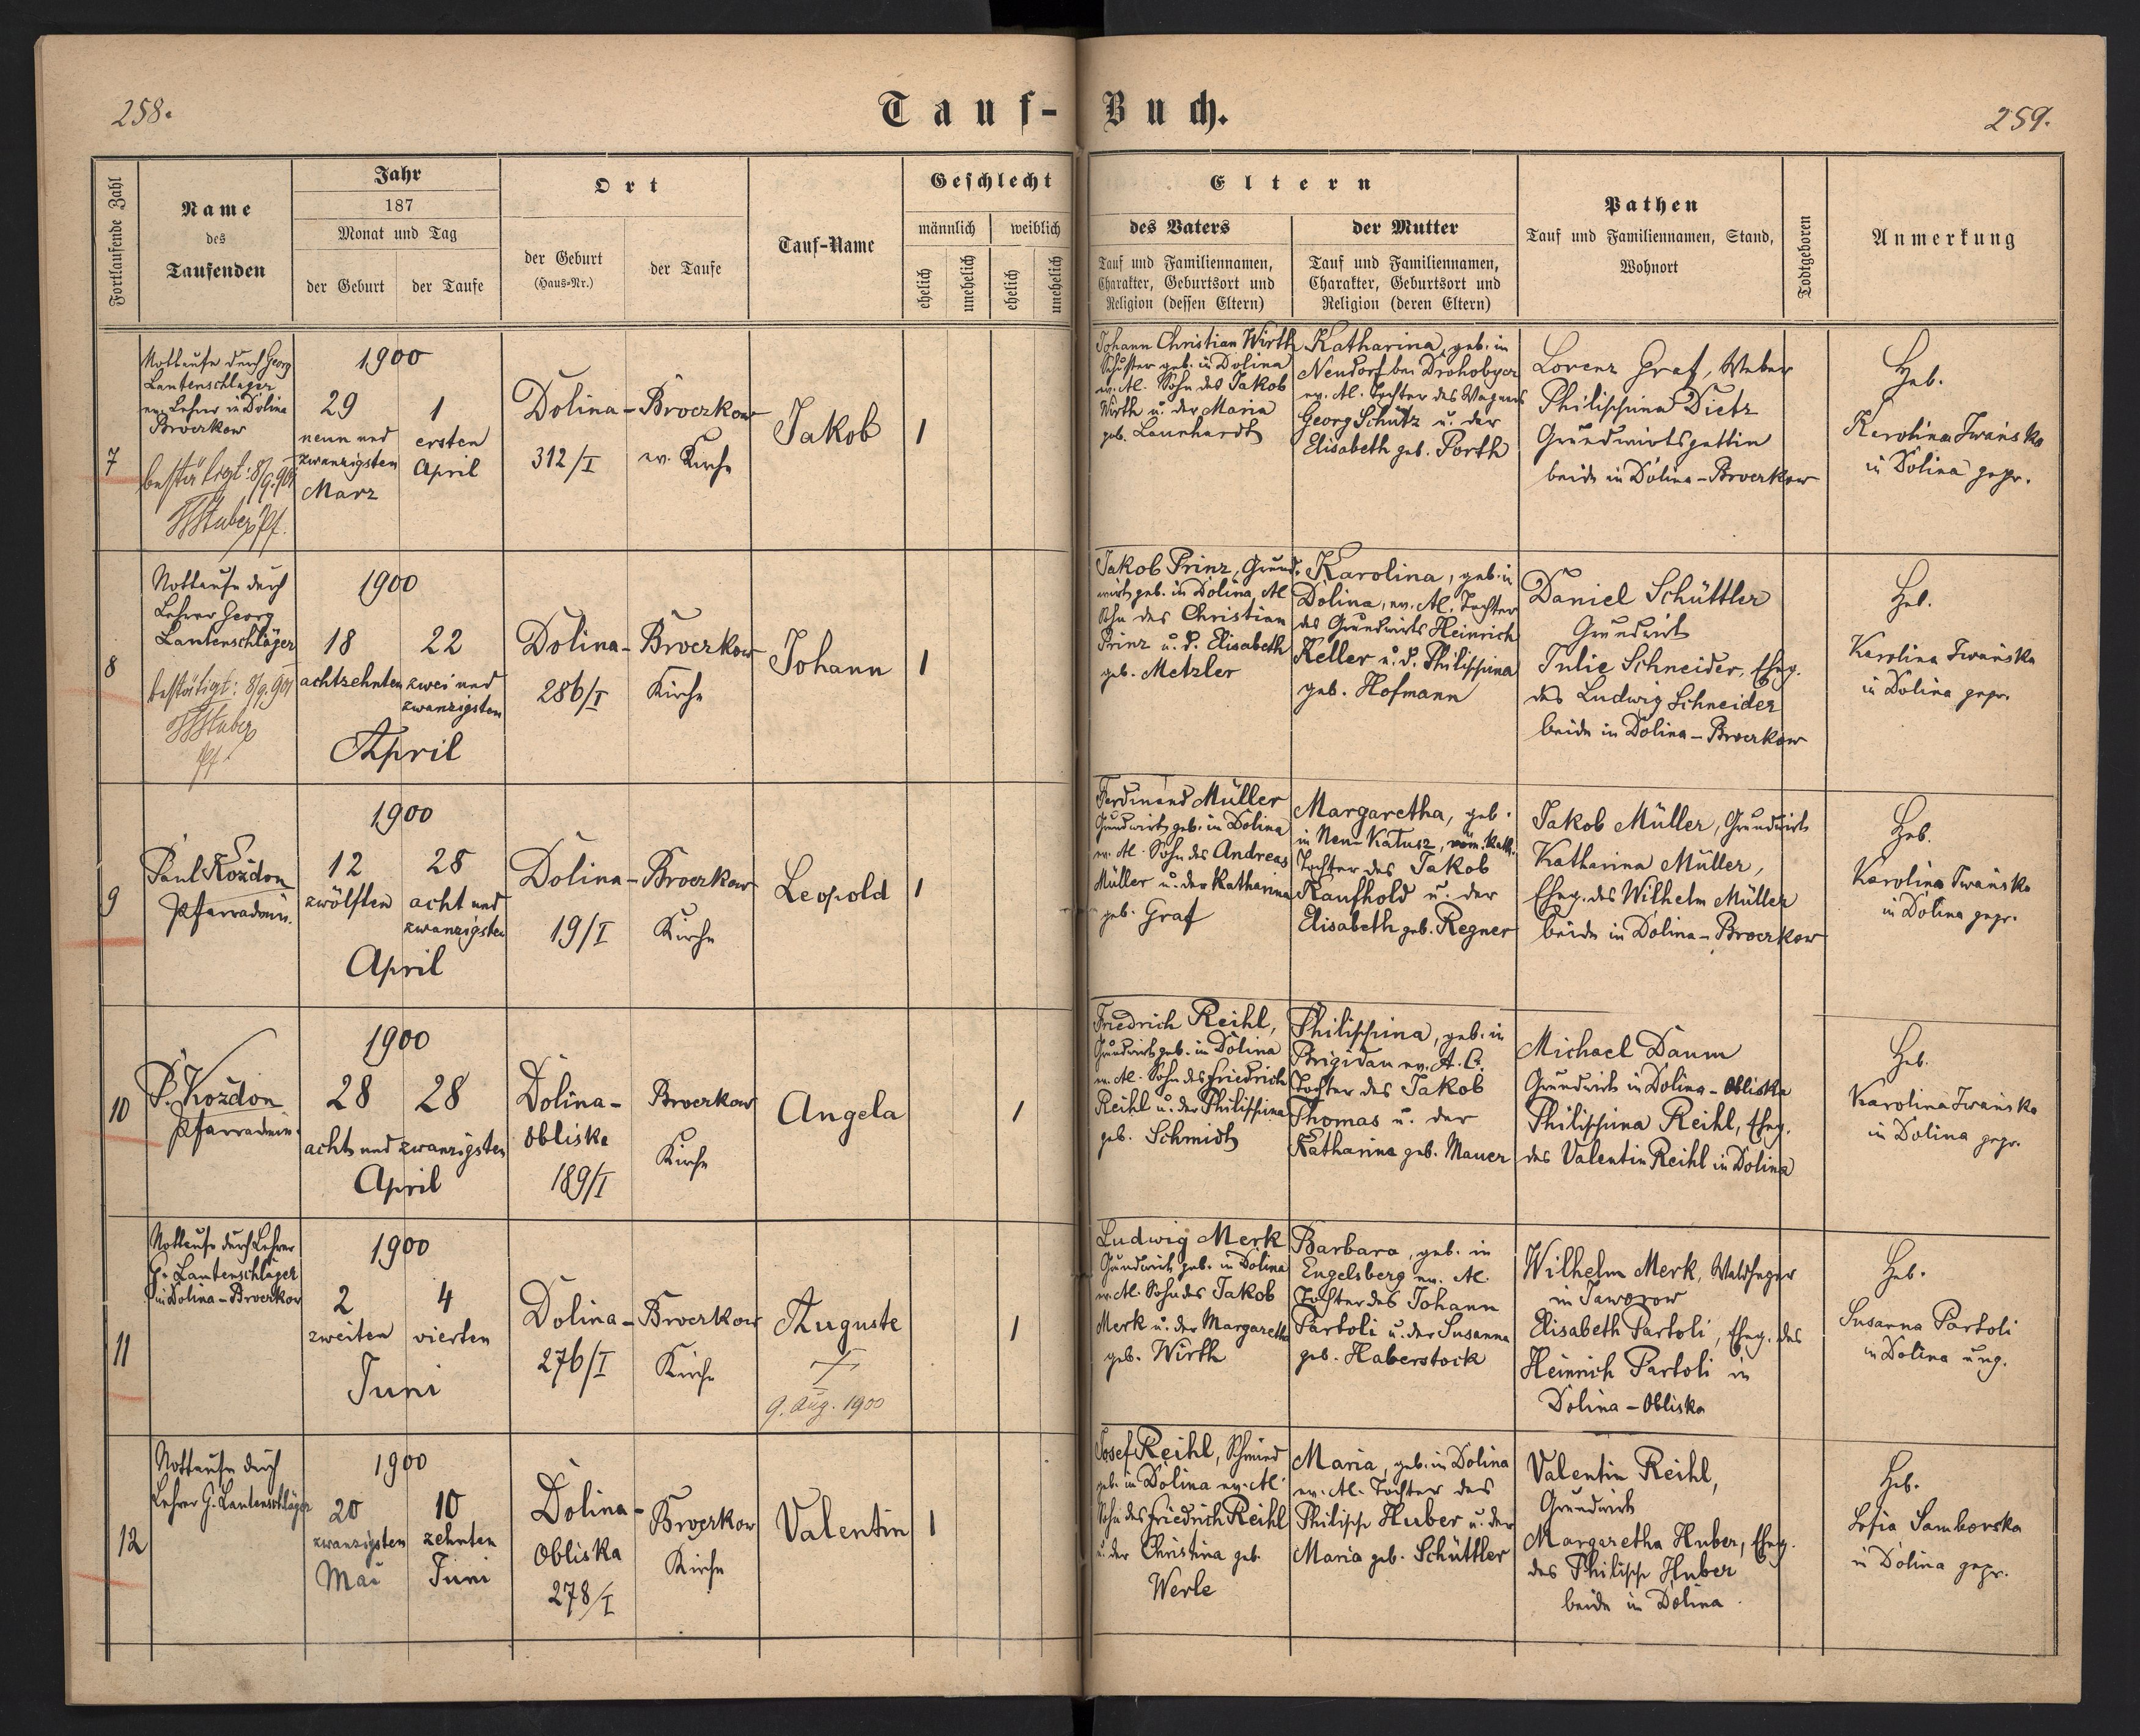 258.
Tauf-Buch.
259.
Fortlaufende Zahl
Name
des
Taufenden
Jahr
187
Monat und Tag
der Geburt
der Taufe
Ort
der Geburt
(Haus-Nr.)
der Taufe
Tauf-Name
Geschlecht
männlich
weiblich
ehelich
unehelich
ehelich
unehelich
Eltern
des Vaters
Tauf und Familiennamen,
Charakter, Geburtsort und
Religion (dessen Eltern)
der Mutter
Tauf und Familiennamen,
Charakter, Geburtsort und
Religion (deren Eltern)
Pathen
Tauf und Familiennamen, Stand,
Wohnort
Todtgeboren
Anmerkung
7
Nottaufe durch Georg
Lautenschlager
ev. Lehrer in Dolina
Broczkow
bestätigt: 8/9.901
Pf.
1900
29
neun und
zwanzigsten
März
1
ersten
April
Dolina-
312/I
Broczkow
ev. Kirche
Jakob
1
Johann Christian Wirth
Schuster geb. in Dolina
ev. AC. Sohn des Jakob
Wirth u. der Maria
geb. Launhardt
Katharina, geb. in
Neudorf bei Drohobycz
ev. AC. Tochter des Wagners
Georg Schütz u. der
Elisabeth geb. Porth
Lorenz Graf, Weber
Philippina Dietz
Grundwirtsgattin
beide in Dolina-Broczkow
Heb.
Karolina Iwańska
in Dolina gepr.
8
Nottaufe durch
Lehrer Georg
Lautenschläger
bestätigt: 8/9.901
Pf.
1900
18
achtzehnten
22
zwei und
zwanzigsten
April
Dolina-
286/I
Broczkow
Kirche
Johann
1
Jakob Prinz, Grund-
wirt geb. in Dolina, AC
Sohn des Christian
Prinz u. d. Elisabeth
geb. Metzler
Karolina, geb. in
Dolina, ev. AC. Tochter
des Grundwirts Heinrich
Keller u. d. Philippina
geb. Hofmann
Daniel Schüttler
Grundwirt
Julie Schneider, Eheg.
des Ludwig Schneider
beide in Dolina-Broczkow
Heb.
Karolina Iwańska
in Dolina gepr.
9
Paul Kożdon
Pfarradmin.
1900
12
zwölften
28
acht und
zwanzigsten
April
Dolina-
19/I
Broczkow
Kirche
Leopold
1
Ferdinand Müller
Grundwirt geb. in Dolina
ev. AC. Sohn des Andreas
Müller u. der Katharina
geb. Graf
Margaretha, geb.
in Neu-Kałusz, röm. kath.
Tochter des Jakob
Kaufhold u. der
Elisabeth geb. Regner
Jakob Müller, Grundwirt
Katharina Müller,
Eheg. des Wilhelm Müller
beide in Dolina-Broczkow
Heb.
Karolina Iwańska
in Dolina gepr.
10
P. Kożdon
Pfarradmin.
1900
28
28
acht und zwanzigsten
April
Dolina-
Obliska
189/I
Broczkow
Kirche
Angela
1
Friedrich Reihl,
Grundwirt geb. in Dolina
ev. AC. Sohn des Friedrich
Reihl u. der Philippina
geb. Schmidt
Philippina, geb. in
Brigidau ev. A. C.
Tochter des Jakob
Thomas u. der
Katharina geb. Mauer
Michael Daum
Grundwirt in Dolina-Obliska
Philippina Reihl, Eheg.
des Valentin Reihl in Dolina
Heb.
Karolina Iwańska
in Dolina gepr.
11
Nottaufe durch Lehrer
G. Lautenschläger
in Dolina-Broczkow
1900
2
zweiten
4
vierten
Juni
Dolina-
276/I
Broczkow
Kirche
Auguste
9. Aug. 1900
1
Ludwig Merk
Grundwirt geb. in Dolina
ev. AC. Sohn des Jakob
Merk u. der Margaretha
geb. Wirth
Barbara, geb. in
Engelsberg ev. AC.
Tochter des Johann
Partoli u. der Susanna
geb. Haberstock
Wilhelm Merk, Waldheger
in Jaworow
Elisabeth Partoli, Eheg. des
Heinrich Partoli in
Dolina-Obliska
Heb.
Susanna Partoli
in Dolina ung.
12
Nottaufe durch
Lehrer G. Lautenschläger
1900
20
zwanzigsten
Mai
10
zehnten
Juni
Dolina-
Obliska
278/I
Broczkow
Kirche
Valentin
1
Josef Reihl, Schmied
geb. in Dolina ev. AC
Sohn des Friedrich Reihl
u. der Christina geb.
Werle
Maria, geb. in Dolina
ev. AC. Tochter des
Philipp Huber u. der
Maria geb. Schüttler
Valentin Reihl,
Grundwirt
Margaretha Huber, Eheg.
des Philipp Huber
beide in Dolina.
Heb.
Sofia Samborska
in Dolina gepr.